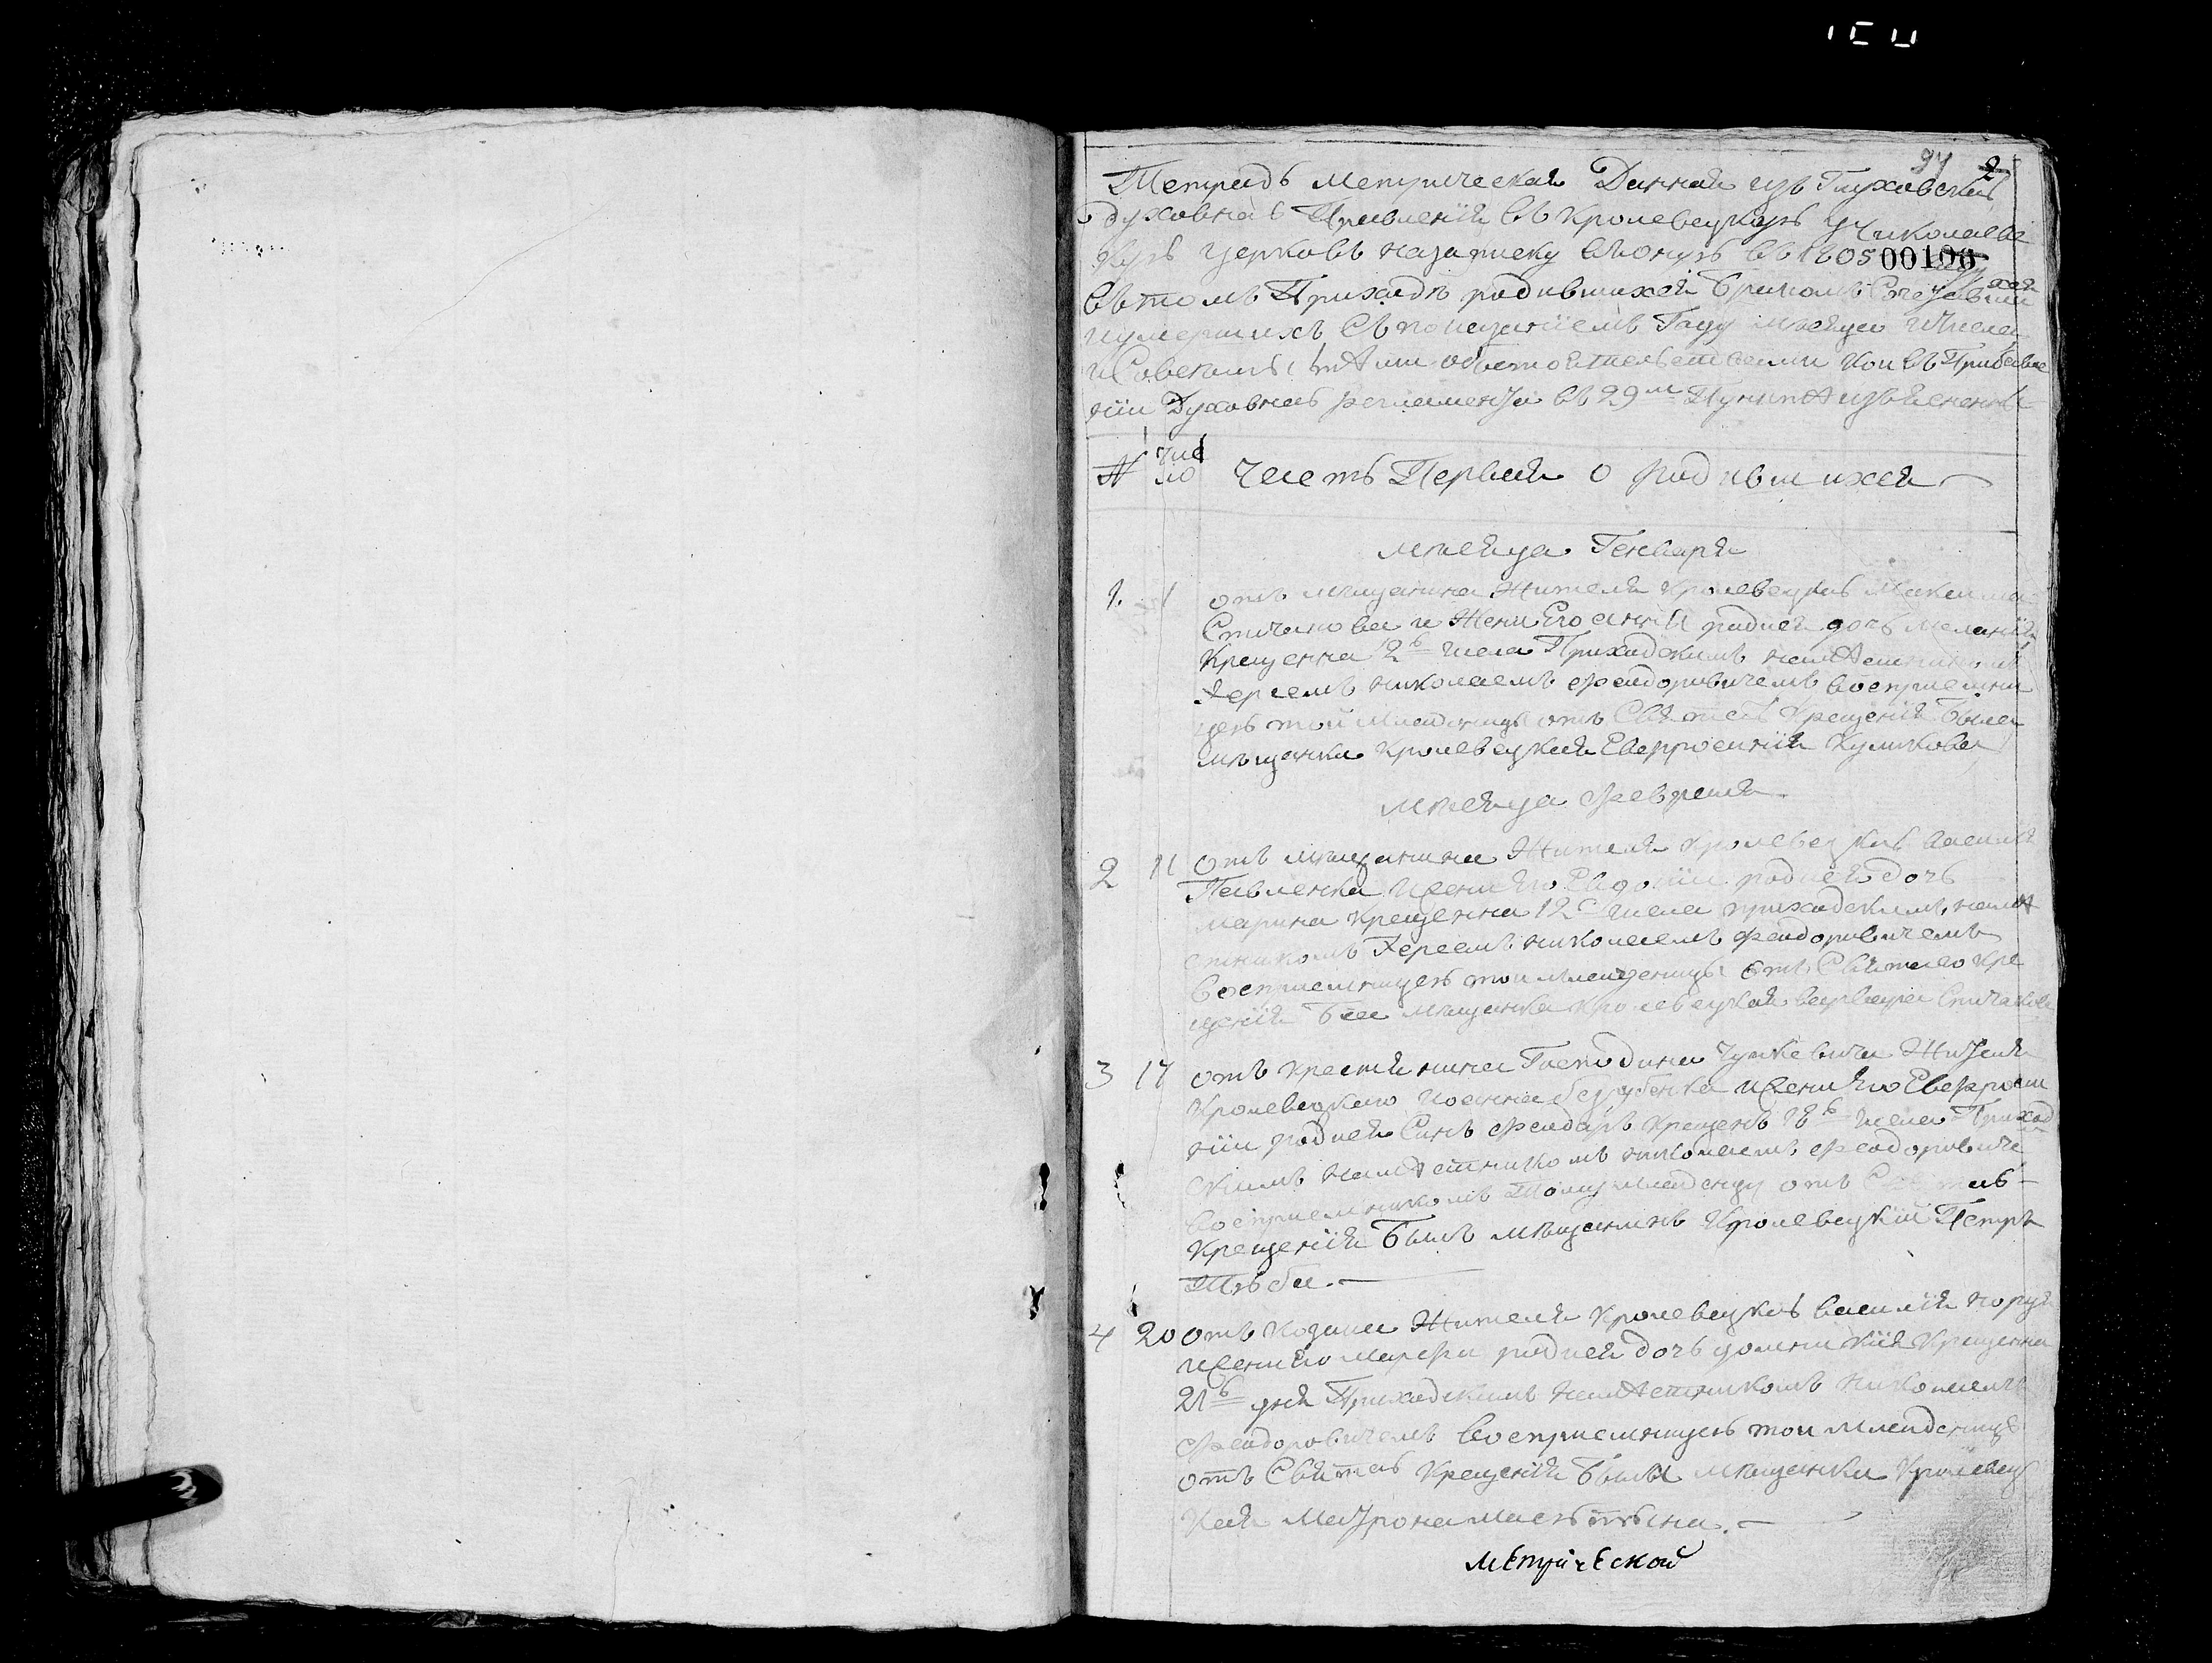 94 2
Тетрадь метрическая Данная изъ Глуховского
Духовнаго Правления въ Кролевецкую Николаев
скую Церковь на записку въ оную въ 1805 00106
въ томъ Приходѣ родившихся Бракомъ Сочетавши хся
и умершихъ Съ показаніемъ Году мѣсяца и числа
и Со всѣми обстоятельствами кои въ Прибавле
нии Духовнаго регламента въ 29м Пунктѣ изъяснены
№ Чис
ло Часть Первая о родившихся
мѣсяца Генваря
1. 1 отъ мѣщанина Жителя Кролевецкаго Максима
Стичакова и Жени Его анны родися дочь Меланія
Крещенна 2го числа Приходскимъ намѣстникомъ
Іереемъ николаемъ Феодоровичемъ восприемни
цею той Младеницы отъ Святаго Крещенія Была
мѣщанка Кролевецкая Евфросинія Куликова
мѣсяца Февраля
2 11 Отъ мѣщанина Жителя Кролевецкаго василія
Павленка и Жени Его Евдокіи родися дочь
марина Крещенна 12го числа приходскимъ намѣ
стникомъ Іереемъ николаемъ Феодоровичемъ
восприемницею той младеницы отъ Святаго Кре
щенія Бѣла мѣщанка Кролевецкая варвара Стичакова
3 17 отъ Крестянина Господина Жителя
Кролевецкаго иоанна и Жени Его Евфроси
ніи родися Синъ Феодоръ Крещенъ 18го числа Приход
скимъ намѣстникомъ николаемъ Феодорович
восприемникомъ Тому младенцу отъ Святаго
Крещенія Былъ мѣщанинъ Кролевецкій Петръ
4 20 Отъ Козака Жителя Кролевецкаго василія
и Жени Его Марфи родися дочь домникія Крещенна
21го дня Приходскимъ намѣстникомъ Николаемъ
Феодоровичемъ восприемницею той младеницы
отъ Святаго Крещенія Была мѣщанка Кролевец
кая Матрона
метрической